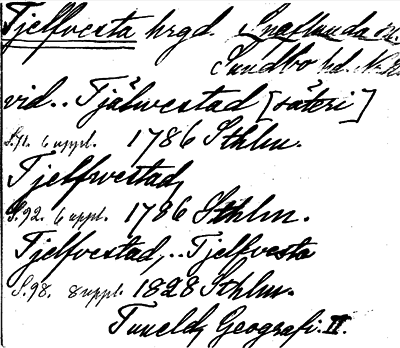 Tjelfvesta hrgd. Snaflunda sn.
Sundbo hd. N. L.
vid.. Tjälwestad [säteri]
S.71. 6 uppl. 1786 Sthlm.
Tjelfwestad,
S.92. 6 uppl. 1786 Sthlm.
Tjelfvestad,.. Tjelfvesta
S.98. 8 uppl. 1828 Sthlm.
Tuneld, Geografi. II.